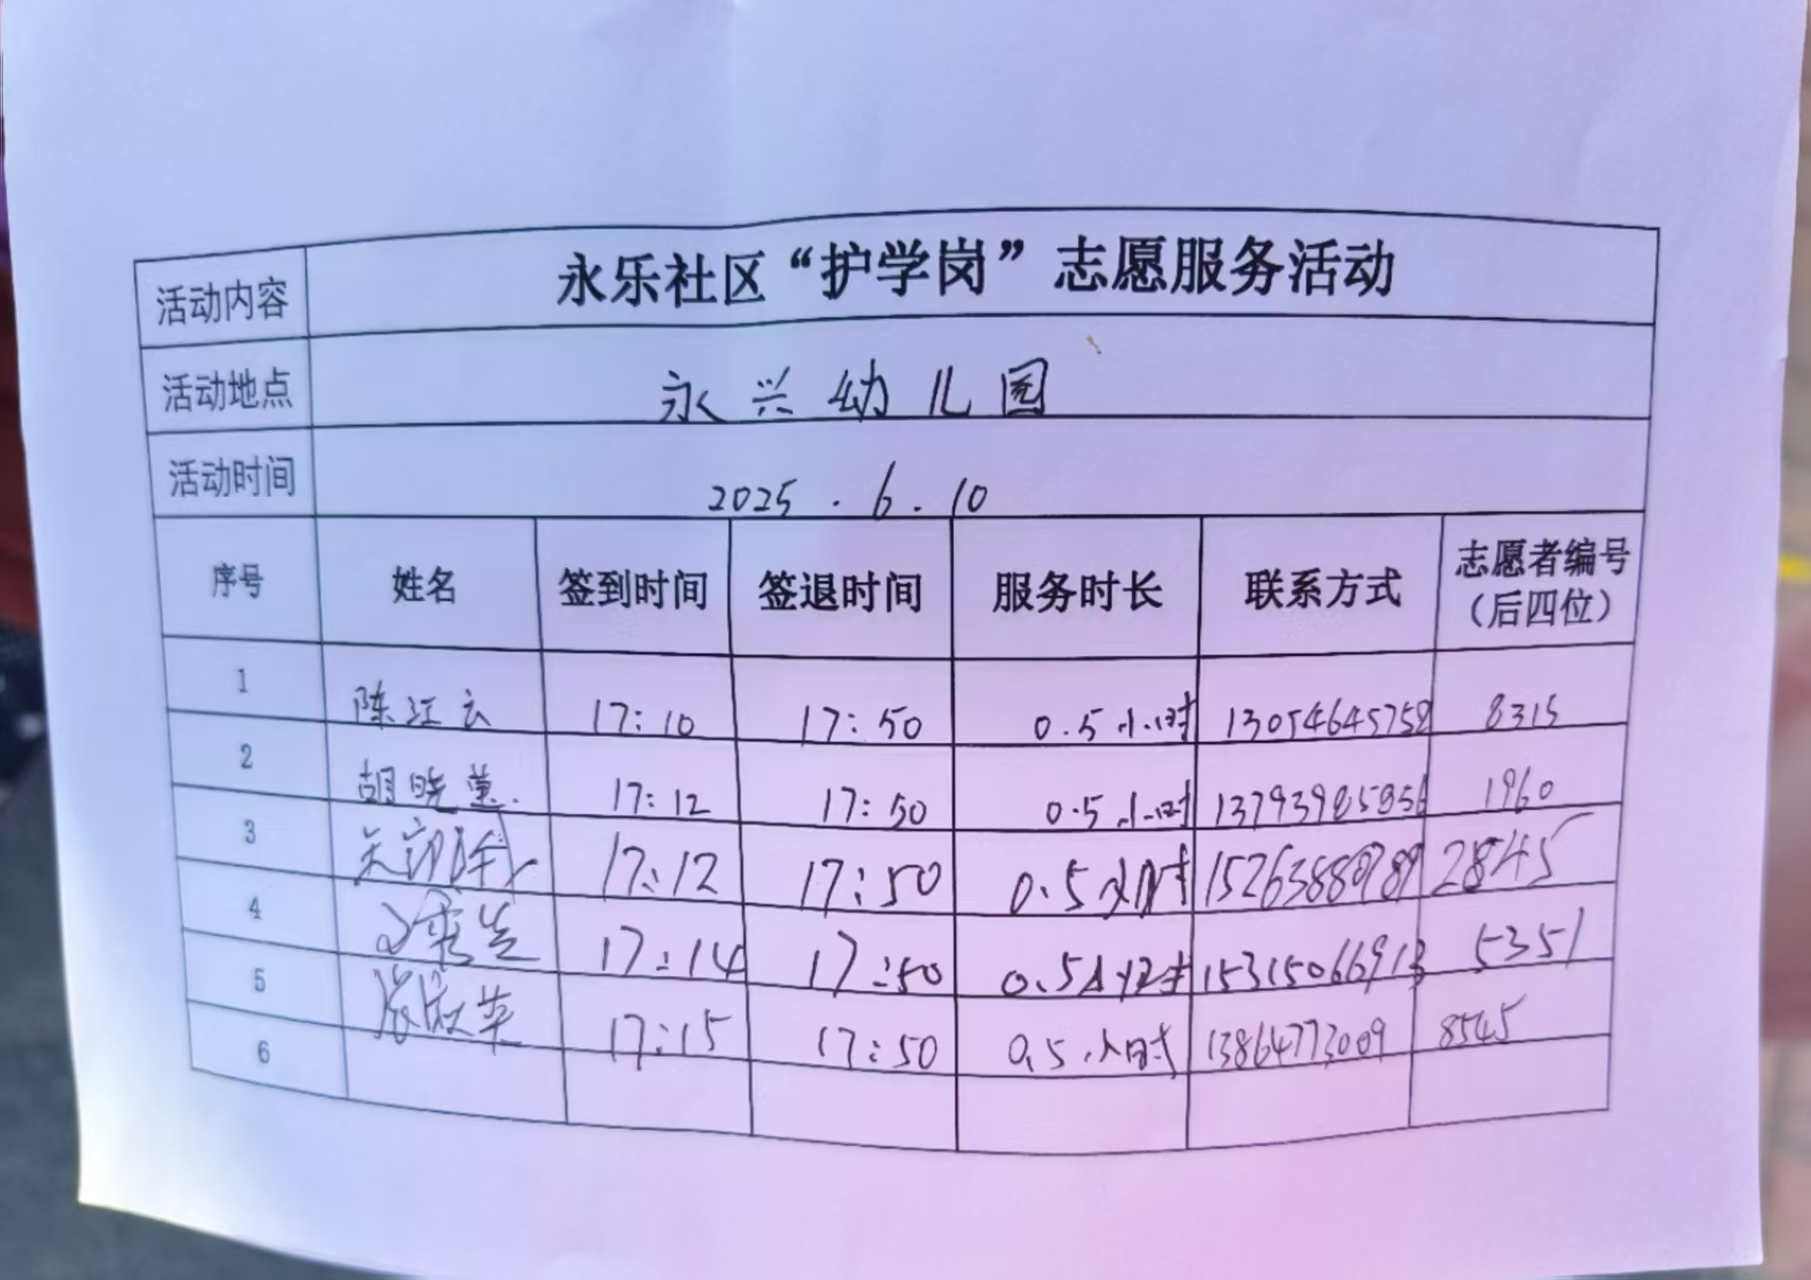 活动内容 永乐社区“护学岗”志愿服务活动
活动地点 永兴幼儿园
活动时间 2025.6.10
序号 姓名 签到时间 签退时间 服务时长 联系方式 志愿者编号（后四位）
1 陈江云 17:10 17:50 0.5小时 13054645752 8315
2 胡晓 17:12 17:50 0.5小时 1960
3 17:12 17:50 0.5小时 2845
4 17:14 17:50 0.5小时 15315066913 5351
5 17:15 17:50 0.5小时 13864773009 8545
6